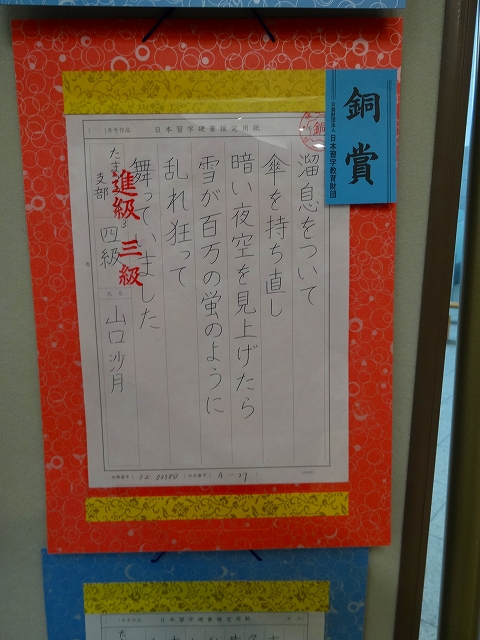 銅賞
公益財団法人 日本習字教育財団
日本習字硬筆検定用紙
溜息をついて
傘を持ち直し
暗い夜空を見上げたら
雪が百万の蛍のように
乱れ狂って
舞っていました
進級 三級
支部 四級
氏名 山口沙月
A-27
日本習字硬筆検定用紙